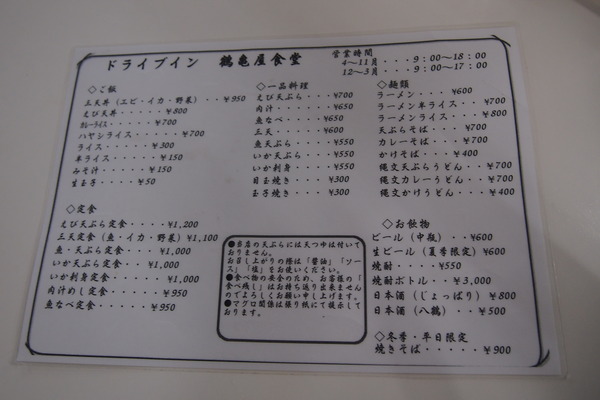 ドライブイン 鶴亀屋食堂
営業時間
4〜11月・・・9:00〜18:00
12〜3月・・・9:00〜17:00
◇ご飯
三天丼(エビ・イカ・野菜)・・¥950
えび天丼・・・・・¥800
カレーライス・・・・・¥700
ハヤシライス・・・・・¥700
ライス・・・・・¥300
半ライス・・・・・¥150
みそ汁・・・・・¥150
生玉子・・・・¥50
◇定食
えび天ぷら定食・・・・¥1,200
三天定食(魚・イカ・野菜)¥1,100
魚・天ぷら定食・・・・¥1,000
いか天ぷら定食・・¥1,000
いか刺身定食・・・・¥1,000
肉汁めし定食・・・・・¥950
魚なべ定食・・・・・¥950
◇一品料理
えび天ぷら・・・・¥700
肉汁・・・・・¥650
魚なべ・・・・・¥650
三天・・・・・¥600
魚天ぷら・・・・・¥550
いか天ぷら・・・・¥550
いか刺身・・・・・¥550
目玉焼き・・・・¥300
玉子焼き・・・・¥300
●当店の天ぷらには天つゆは付いて
おりません。
お召し上がりの際は「醤油」「ソー
ス」「塩」をお使いください。
●食べ物の安全のため、お客様の「
食べ残し」はお持ち返り出来ません
のでよろしくお願い申し上げます。
●マグロ関係は張り紙にて提示して
おります。
◇麺類
ラーメン・・・・¥600
ラーメン半ライス・・・・¥700
ラーメンライス・・・・¥800
天ぷらそば・・・・¥700
カレーそば・・・・¥700
かけそば・・・・¥400
縄文天ぷらうどん・・・¥700
縄文カレーうどん・・・¥700
縄文かけうどん・・・¥400
◇お飲物
ビール(中瓶)・・¥600
生ビール(夏季限定)¥600
焼酎・・・・¥550
焼酎ボトル・・・・¥3,000
日本酒(じょっぱり)¥800
日本酒(八鶴)・・・¥500
◇冬季・平日限定
焼きそば・・・・・¥900